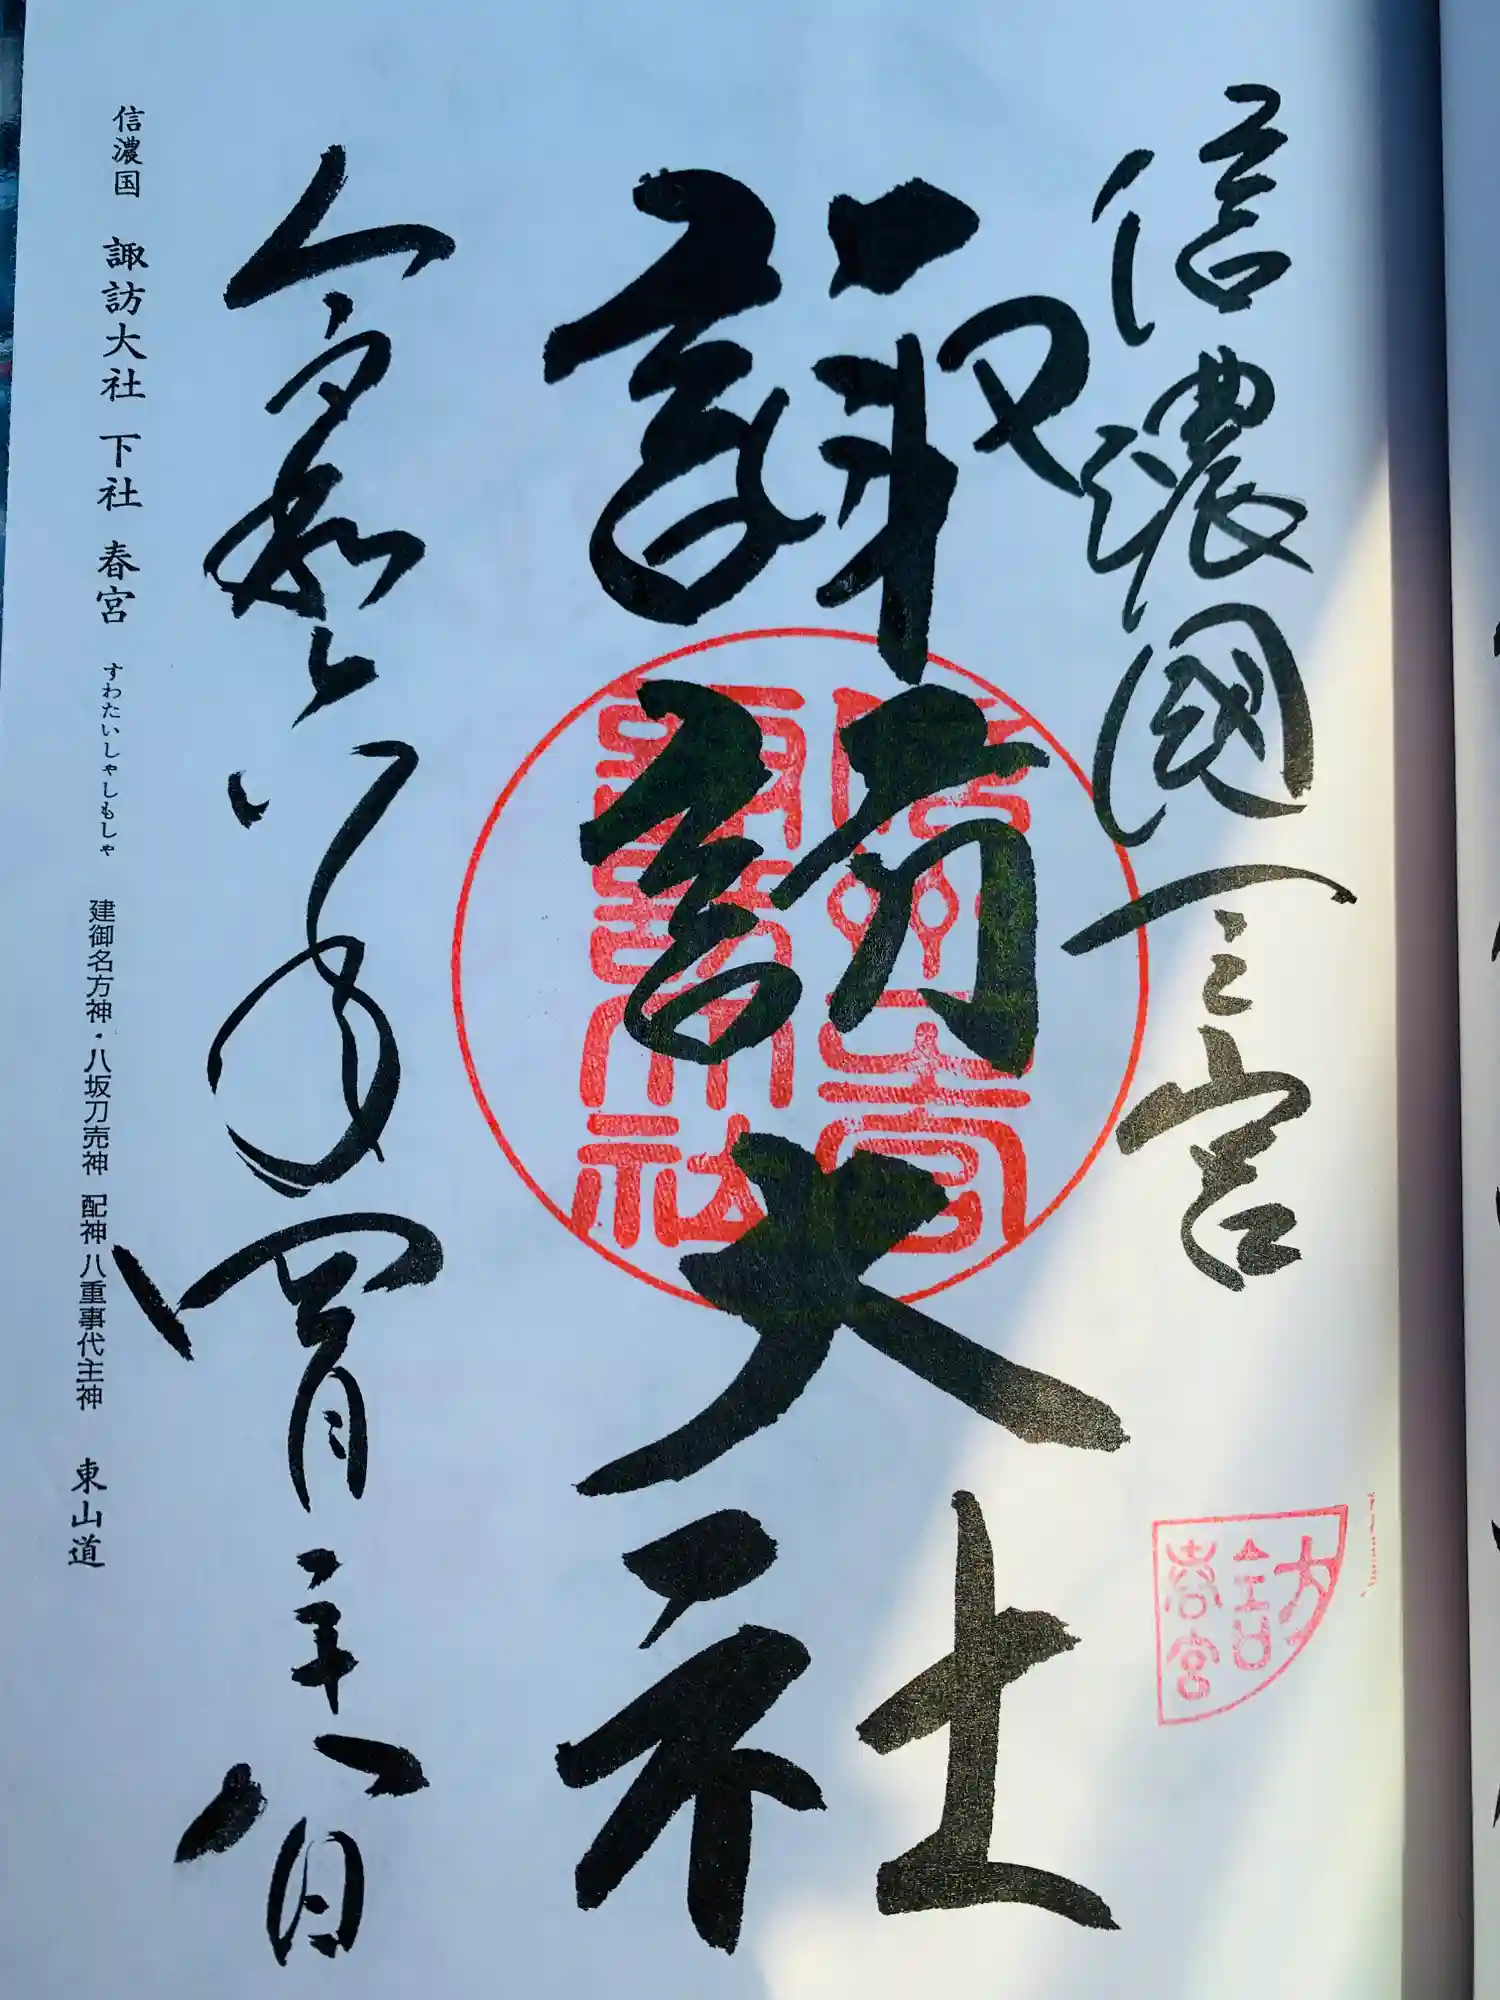 信濃國一之宮
諏訪大社
訪
春宮
令和六年四月二十八日
信濃国 諏訪大社 下社 春宮 すわたいしゃしもしゃ 建御名方神・八坂刀売神 配神 八重事代主神 東山道